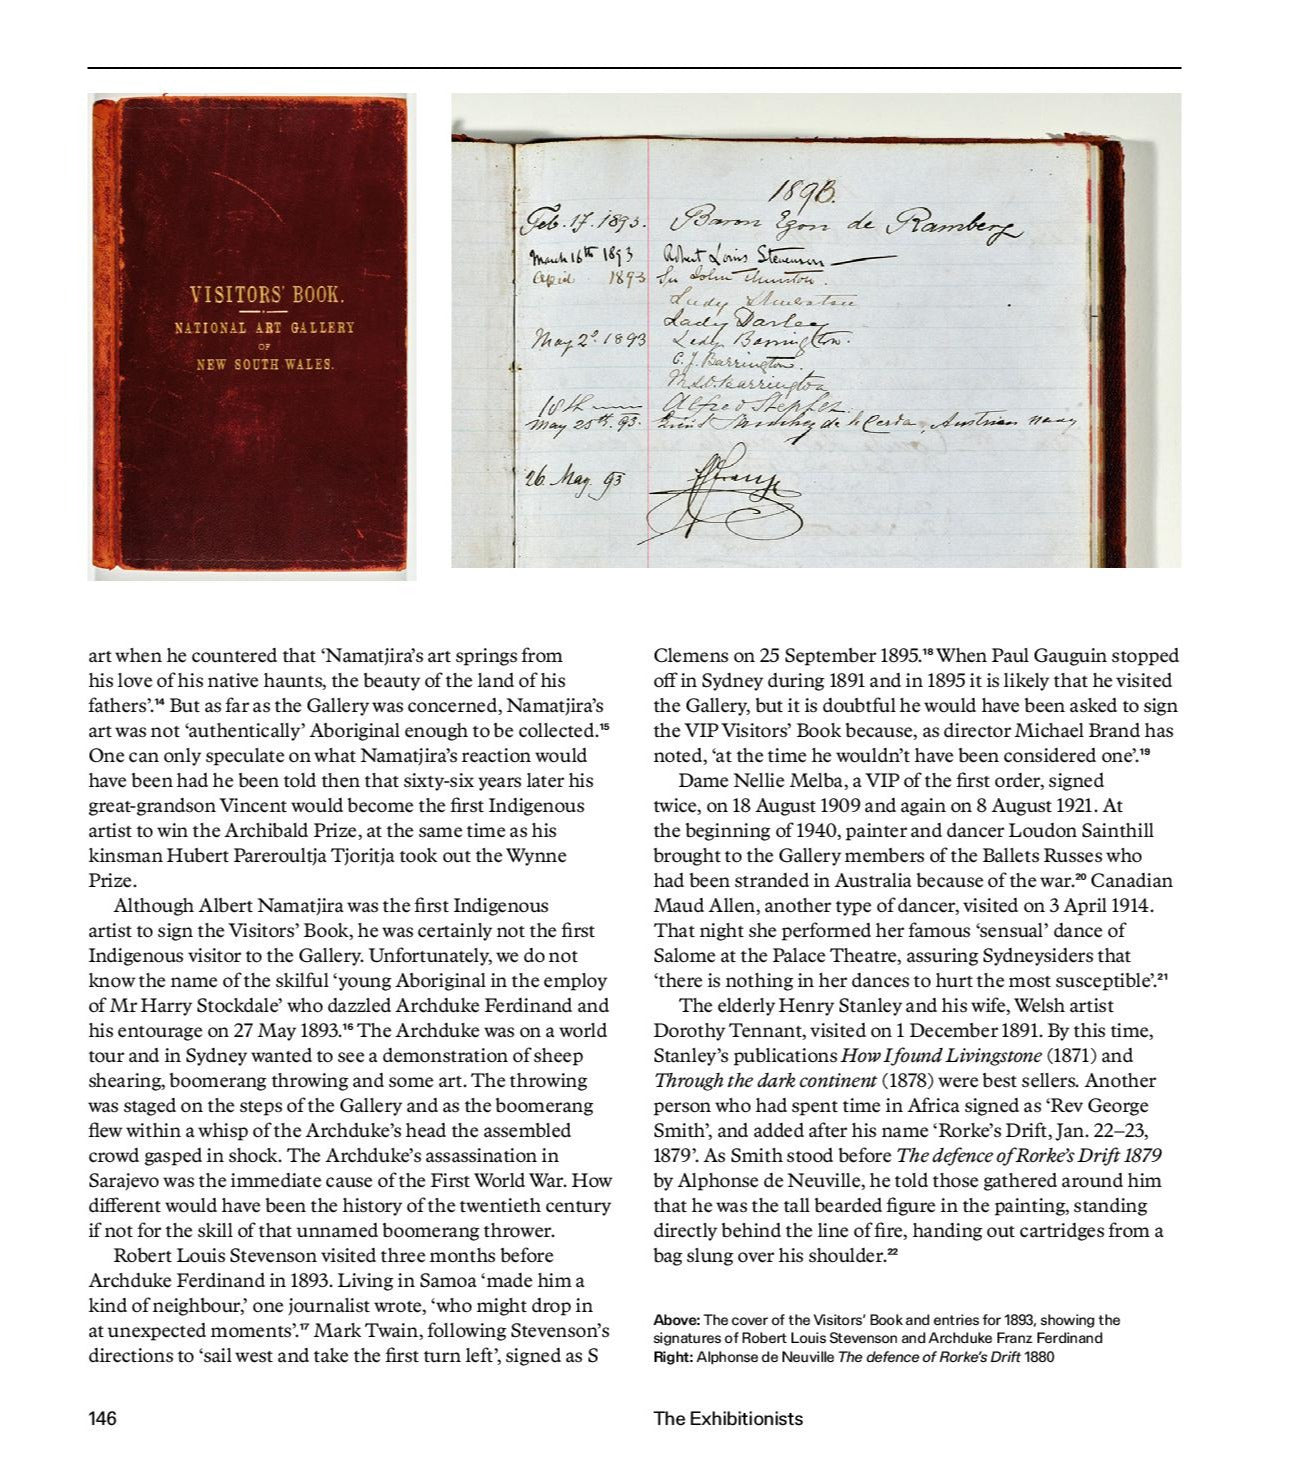 VISITORS' BOOK.
NATIONAL ART GALLERY
OF
NEW SOUTH WALES.
1893.
Feb. 17. 1893. Baron Egon de Ramberg
March 16th 1893 Robert Louis Stevenson
April 1893 Sir John Thurston.
Lady Thurston
Lady Darley
May 2d. 1893 Lady Barrington.
C. J. Barrington.
Barrington
18th Alfred Stephen.
May 25th. 93. de la Cerda, Austrian navy
26. May. 93
art when he countered that ‘Namatjira’s art springs from
his love of his native haunts, the beauty of the land of his
fathers’.14 But as far as the Gallery was concerned, Namatjira’s
art was not ‘authentically’ Aboriginal enough to be collected.15
One can only speculate on what Namatjira’s reaction would
have been had he been told then that sixty-six years later his
great-grandson Vincent would become the first Indigenous
artist to win the Archibald Prize, at the same time as his
kinsman Hubert Pareroultja Tjoritja took out the Wynne
Prize.
Although Albert Namatjira was the first Indigenous
artist to sign the Visitors’ Book, he was certainly not the first
Indigenous visitor to the Gallery. Unfortunately, we do not
know the name of the skilful ‘young Aboriginal in the employ
of Mr Harry Stockdale’ who dazzled Archduke Ferdinand and
his entourage on 27 May 1893.16 The Archduke was on a world
tour and in Sydney wanted to see a demonstration of sheep
shearing, boomerang throwing and some art. The throwing
was staged on the steps of the Gallery and as the boomerang
flew within a whisp of the Archduke’s head the assembled
crowd gasped in shock. The Archduke’s assassination in
Sarajevo was the immediate cause of the First World War. How
different would have been the history of the twentieth century
if not for the skill of that unnamed boomerang thrower.
Robert Louis Stevenson visited three months before
Archduke Ferdinand in 1893. Living in Samoa ‘made him a
kind of neighbour,’ one journalist wrote, ‘who might drop in
at unexpected moments’.17 Mark Twain, following Stevenson’s
directions to ‘sail west and take the first turn left’, signed as S
Clemens on 25 September 1895.18 When Paul Gauguin stopped
off in Sydney during 1891 and in 1895 it is likely that he visited
the Gallery, but it is doubtful he would have been asked to sign
the VIP Visitors’ Book because, as director Michael Brand has
noted, ‘at the time he wouldn’t have been considered one’.19
Dame Nellie Melba, a VIP of the first order, signed
twice, on 18 August 1909 and again on 8 August 1921. At
the beginning of 1940, painter and dancer Loudon Sainthill
brought to the Gallery members of the Ballets Russes who
had been stranded in Australia because of the war.20 Canadian
Maud Allen, another type of dancer, visited on 3 April 1914.
That night she performed her famous ‘sensual’ dance of
Salome at the Palace Theatre, assuring Sydneysiders that
‘there is nothing in her dances to hurt the most susceptible’.21
The elderly Henry Stanley and his wife, Welsh artist
Dorothy Tennant, visited on 1 December 1891. By this time,
Stanley’s publications How I found Livingstone (1871) and
Through the dark continent (1878) were best sellers. Another
person who had spent time in Africa signed as ‘Rev George
Smith’, and added after his name ‘Rorke’s Drift, Jan. 22–23,
1879’. As Smith stood before The defence of Rorke’s Drift 1879
by Alphonse de Neuville, he told those gathered around him
that he was the tall bearded figure in the painting, standing
directly behind the line of fire, handing out cartridges from a
bag slung over his shoulder.22
Above: The cover of the Visitors’ Book and entries for 1893, showing the
signatures of Robert Louis Stevenson and Archduke Franz Ferdinand
Right: Alphonse de Neuville The defence of Rorke’s Drift 1880
146
The Exhibitionists